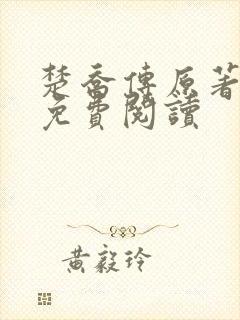 楚喬傳原著
免費閱讀
黃毅玲